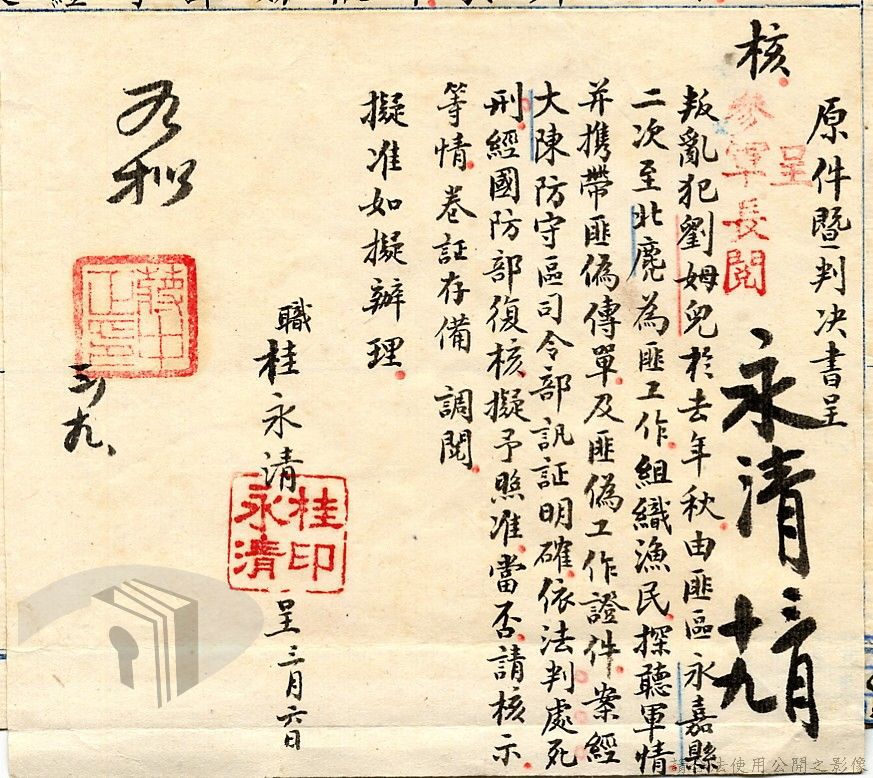 核
原件暨判决書呈
呈
參軍長閱
永清
三月
十九
叛亂犯劉姆兒於去年秋由匪區永嘉縣
二次至北麂為匪工作組織漁民探聽軍情
并携帶匪偽傳單及匪偽工作證件案經
大陳防守區司令部訊証明確依法判處死
刑經國防部復核擬予照准當否請核示
等情卷証存備 調閱
擬准如擬辦理
職桂永清
桂永清印
呈 三月六日
蔣中正印
三九、
請依法使用公開之影像